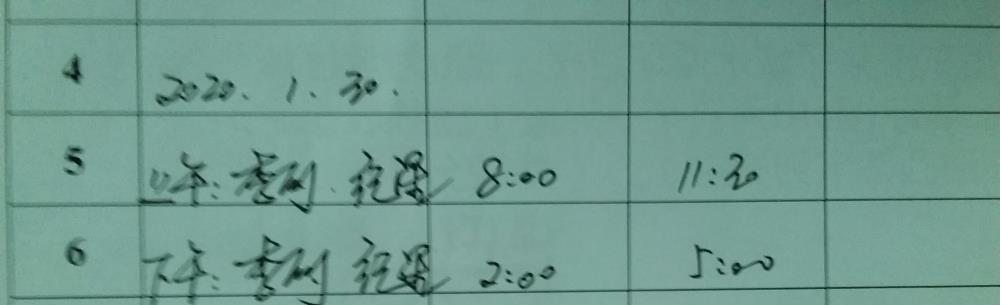 4 2020.1.30.
5 上午: 李刚 8:00 11:30
6 下午: 李刚 2:00 5:00